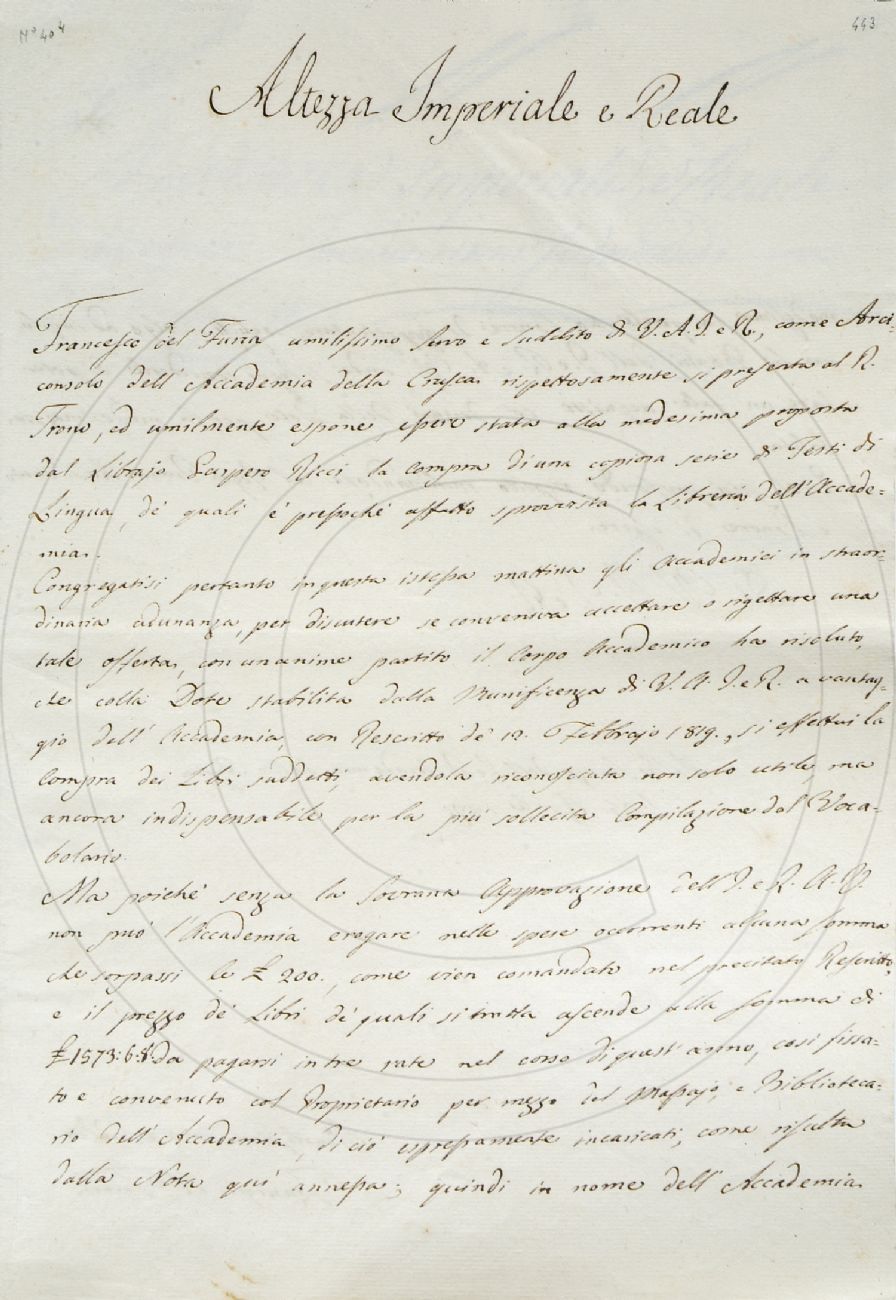 N° 40 4
443
Altezza Imperiale e Reale
Francesco del Furia umilissimo Servo e Suddito di V. A. I. e R., come Arci-
consolo dell' Accademia della Crusca rispettosamente si presenta al R.
Trono, ed umilmente espone, essere stata alla medesima proposta
dal Librajo Gaspero Ricci la Compra di una copiosa serie di Testi di
Lingua, de' quali è pressochè affatto sprovvista la Libreria dell' Accade=
mia.
Congregatisi pertanto in questa istessa mattina gli Accademici in straor-
dinaria adunanza, per discutere se conveniva accettare o rigettare una
tale offerta, con unanime partito il Corpo Accademico ha risoluto,
che colla Dote stabilita dalla Munificenza di V. A. I. e R. a vantag-
gio dell' Accademia, con Rescritto de' 12. Febbrajo 1819., si effettui la
Compra dei Libri suddetti, avendola riconosciuta non solo utile, ma
ancora indispensabile per la più sollecita Compilazione del Voca-
bolario.
Ma poichè senza la Sovrana Approvazione dell' I. e R. A. V.
non può l'Accademia erogare nelle spese occorrenti alcuna somma
che sorpassi le £ 200., come vien comandato nel precitato Rescritto,
e il prezzo de' Libri de' quali si tratta ascende alla somma di
£ 1573:6:8. da pagarsi in tre rate nel corso di quest' anno, così fissa-
to e convenuto col Proprietario per mezzo del Massajo, e Biblioteca-
rio dell' Accademia, di ciò espressamente incaricati, come risulta
dalla Nota quì annessa; quindi in nome dell' Accademia